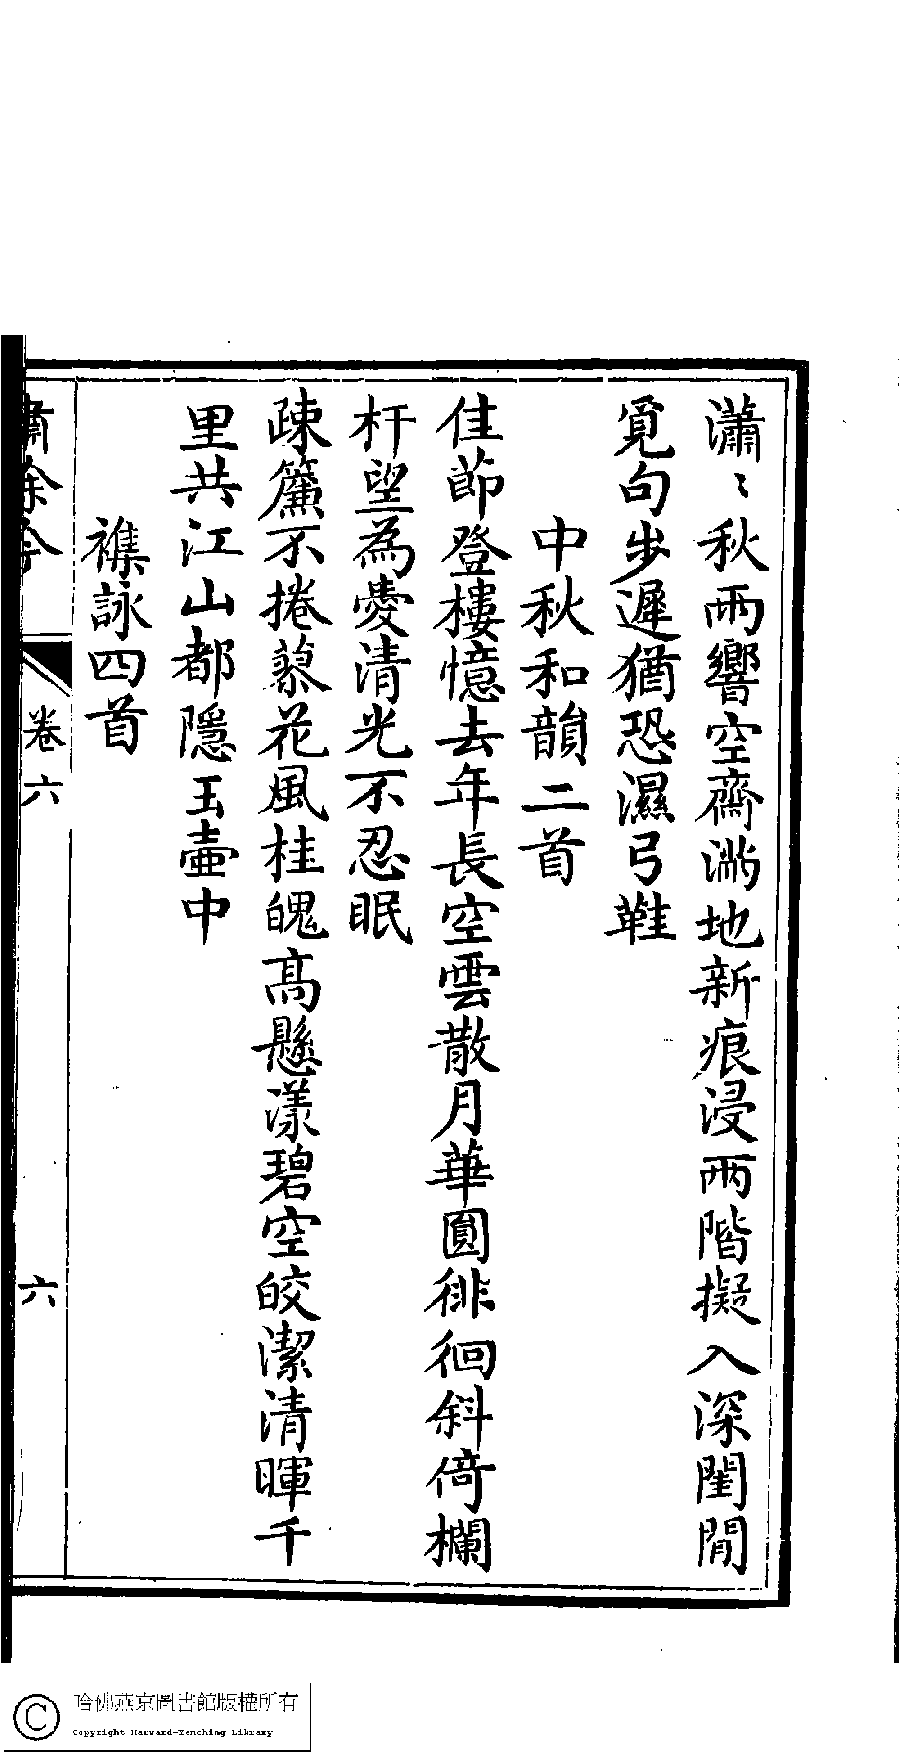 瀟〻秋雨響空齋滿地新痕浸兩階擬入深閨閒
覓句步遲猶恐濕弓鞋
中秋和韻二首
佳節登樓憶去年長空雲散月華圓徘徊斜倚欄
杆望為愛清光不忍眠
疎簾不捲蓼花風桂魄高懸漾碧空皎潔清暉千
里共江山都隱玉壷中
襍詠四首
繡餘吟
卷六
六
哈佛燕京圖書館版權所有
Copyright Harvard-Yenching Library